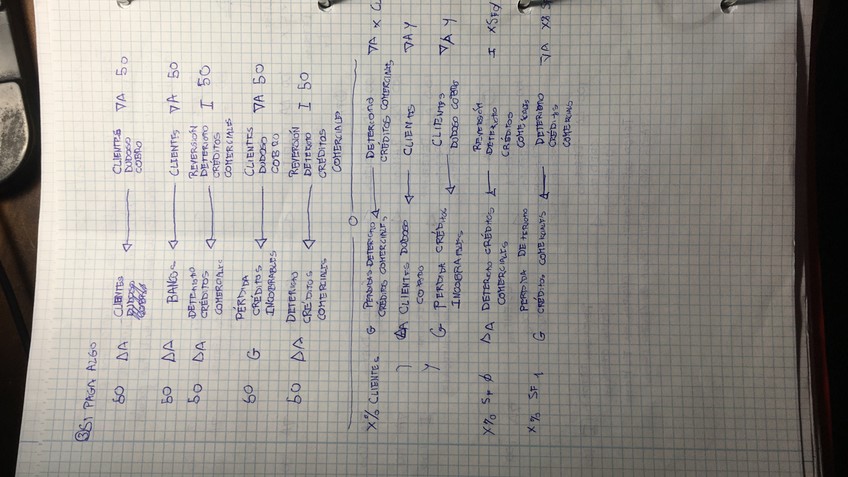 ③ SI PAGA ALGO
50 ΔA CLIENTES ← CLIENTES ∇A 50
DUDOSO
COBRO
50 ΔA BANCOS ← CLIENTES ∇A 50
50 ΔA DETERIORO ← REVERSIÓN I 50
CRÉDITOS DETERIORO
COMERCIALES CRÉDITOS
COMERCIALES
50 G PÉRDIDA ← CLIENTES ∇A 50
CRÉDITOS DUDOSO
INCOBRABLES COBRO
50 ΔA DETERIORO ← REVERSIÓN I 50
CRÉDITOS DETERIORO
COMERCIALES CRÉDITOS
COMERCIALES
O
X% CLIENTES G PERDIDAS DETERIORO ← DETERIORO ∇A X
CRÉDITOS COMERCIALES CRÉDITOS COMERCIALES
ΔA CLIENTES DUDOSO ← CLIENTES ∇A Y
COBRO
Y G PERDIDA CRÉDITOS ← CLIENTES ∇A Y
INCOBRABLES DUDOSO COBRO
X% SF Ø ΔA DETERIORO CRÉDITOS ← REVERSIÓN I XSFØ
COMERCIALES DETERIORO
CRÉDITOS
X% SF 1 G PERDIDA DETERIORO ← DETERIORO ∇A
CRÉDITOS COMERCIALES CRÉDITOS